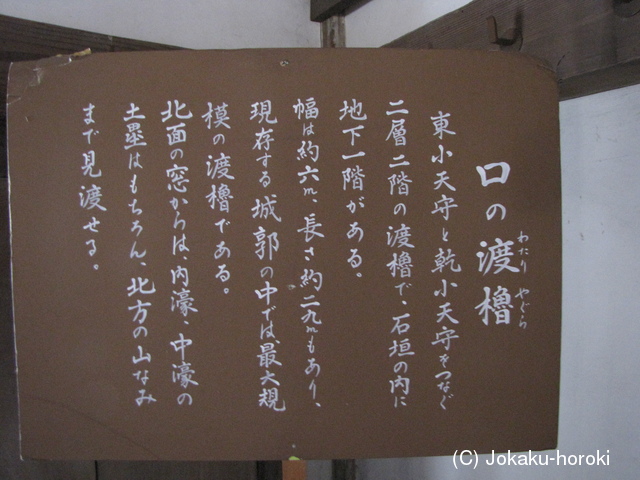 口の渡櫓
わたり やぐら
東小天守と乾小天守をつなぐ
二層二階の渡櫓で、石垣の内に
地下一階がある。
幅は約六m、長さ約二九mもあり、
現存する城郭の中では、最大規
模の渡櫓である。
北面の窓からは、内濠、中濠の
土塁はもちろん、北方の山なみ
まで見渡せる。
(C) Jokaku-horoki